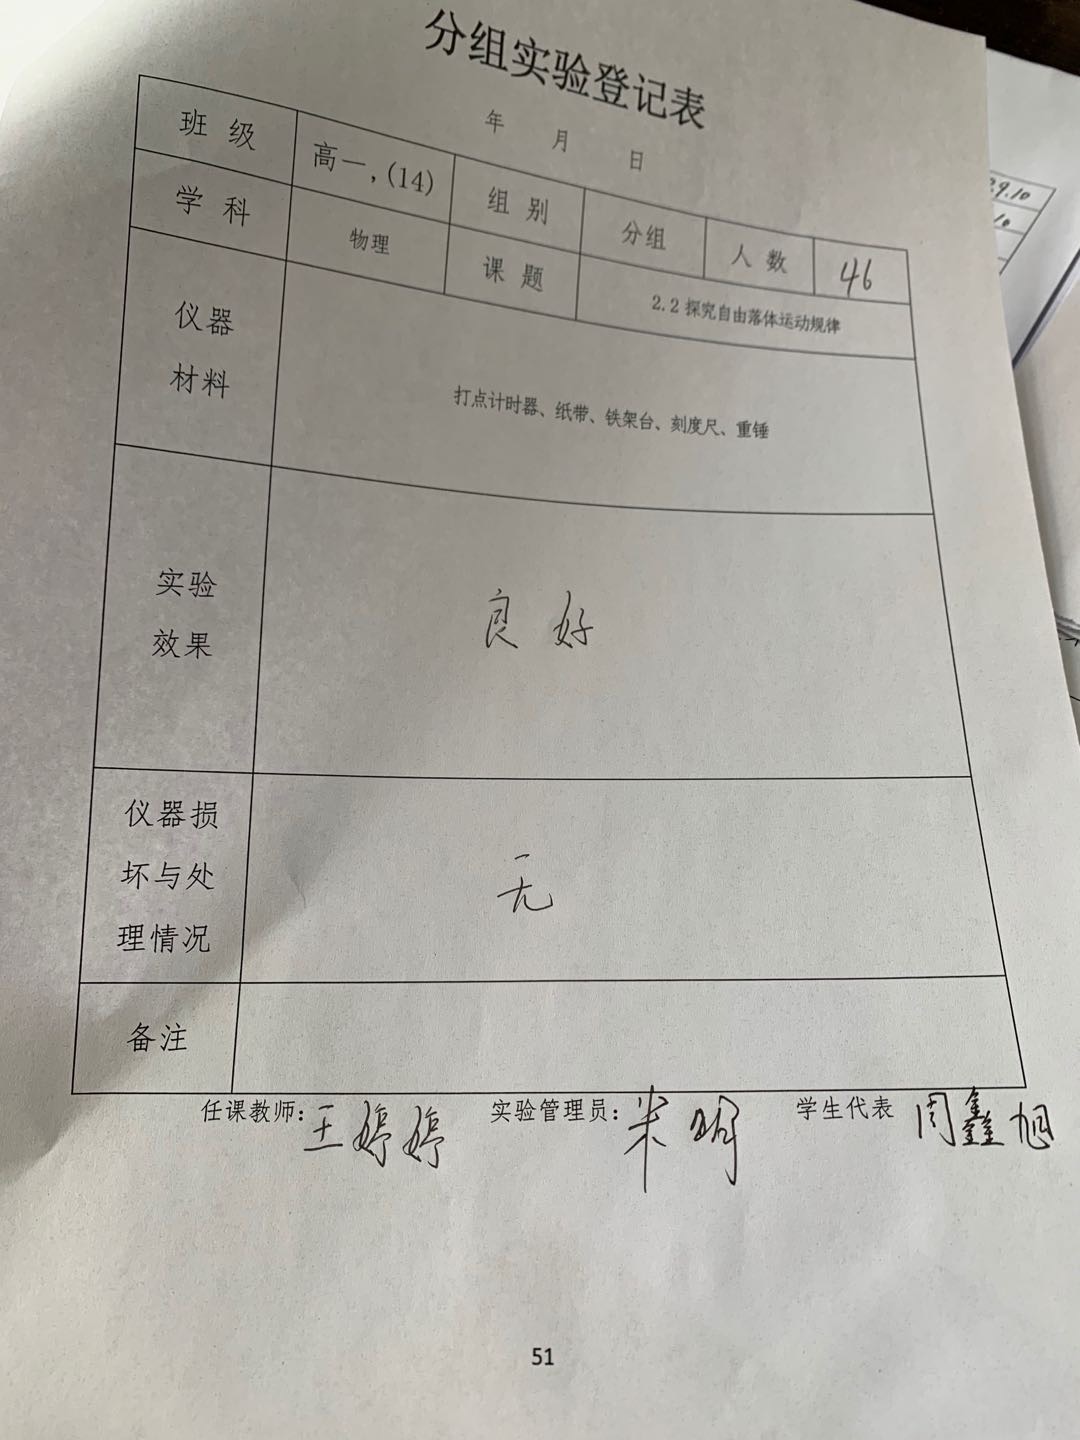 分组实验登记表
年 月 日
班 级 高一,(14) 组 别 分组 人 数 46
学 科 物理 课 题 2.2 探究自由落体运动规律
仪器
材料
打点计时器、纸带、铁架台、刻度尺、重锤
实验
效果
良好
仪器损
坏与处
理情况
无
备注
任课教师: 王婷婷 实验管理员: 朱明 学生代表 周鑫旭
51
9.10
10